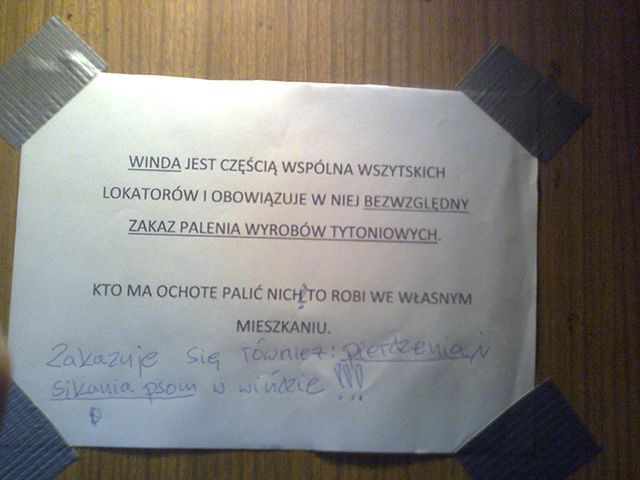 WINDA JEST CZĘŚCIĄ WSPÓLNA WSZYTSKICH
LOKATORÓW I OBOWIĄZUJE W NIEJ BEZWZGLĘDNY
ZAKAZ PALENIA WYROBÓW TYTONIOWYCH.
KTO MA OCHOTE PALIĆ NICH TO ROBI WE WŁASNYM
MIESZKANIU.
Zakazuje się również: pierdzenia, i
sikania psom w windzie !!!